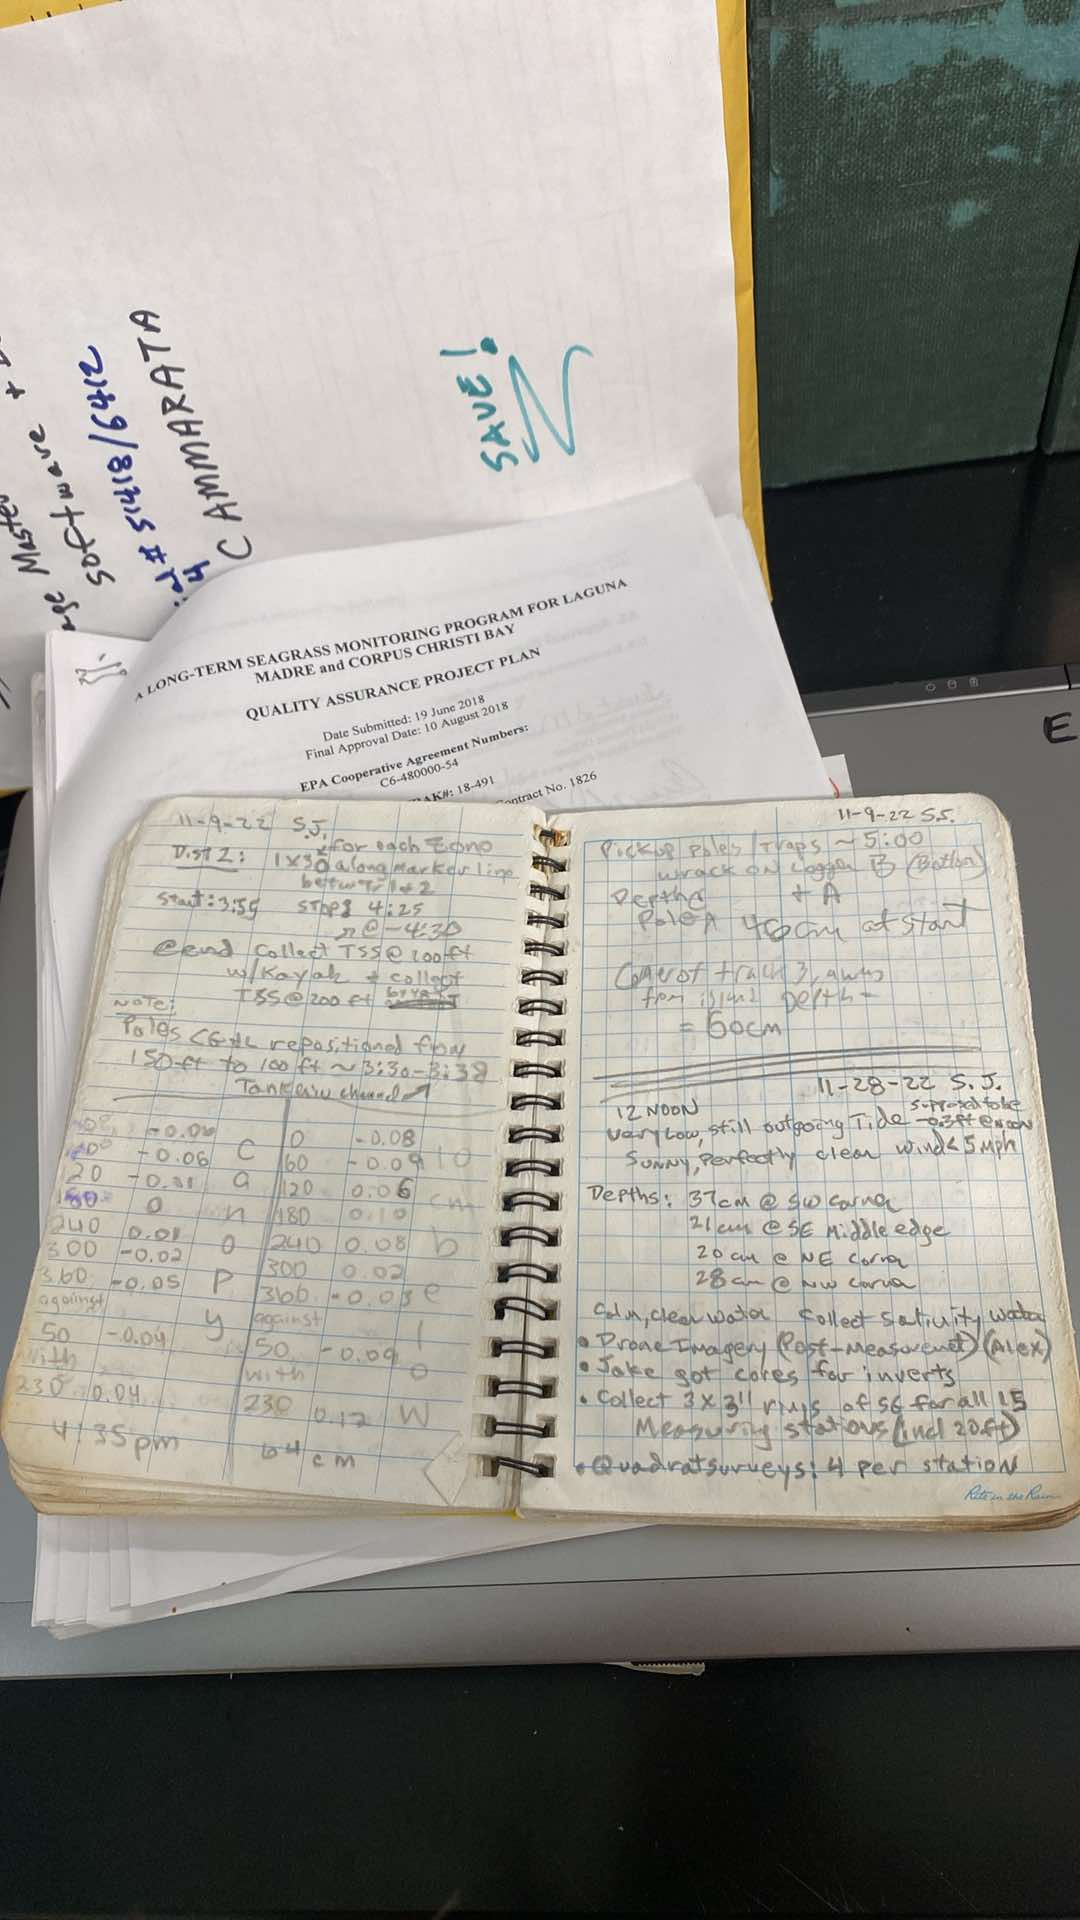 SAVE!
Master +
software
# 51418/6412
4
CAMMARATA
A LONG-TERM SEAGRASS MONITORING PROGRAM FOR LAGUNA
MADRE and CORPUS CHRISTI BAY
QUALITY ASSURANCE PROJECT PLAN
Date Submitted: 19 June 2018
Final Approval Date: 10 August 2018
EPA Cooperative Agreement Numbers:
C6-480000-54
18-491
Contract No. 1826
E
11-9-22 S.J.
for each zone
Dist 2: 1x30 along marker line
betw Tr 1+2
Start: 3:55 stops 4:25
@ ~4:30
@end collect TSS @ 100ft
w/Kayak + collect
TSS @ 200ft
Note:
Poles repositioned from
150ft to 100ft ~3:30-3:38
Tanker in channel
-0.06
-0.06 C
20 a
0 n
240 0.01 o
300 -0.02
360 -0.05 P
against y
50 -0.04
with
230 0.04
4:35pm
0 -0.08
60 -0.09 10
120 0.06 cm
180 0.10
240 0.08 b
300 0.02
360 -0.03 e
against l
50 -0.09 o
with
230 0.12 W
64 cm
11-9-22 S.J.
Pickup poles/Traps ~5:00
wrack on Logger B (Bottom)
Depths + A
Pole A 46cm at start
track 3, away
from island Depth =
= 60cm
11-28-22 S.J.
12 NOON supposed to be
very low, still outgoing Tide -0.3ft @ noon
Sunny, perfectly clear wind < 5 mph
Depths: 37cm @ SW corner
21cm @ SE Middle edge
20 cm @ NE corner
28cm @ NW corner
Calm, clear water collect salinity water
• Drone Imagery (Post-Measurement) (Alex)
• Jake got cores for inverts
• Collect 3 x 3" of SG for all 15
Measuring stations (incl 20ft)
• Quadrat surveys: 4 per station
Rite in the Rain